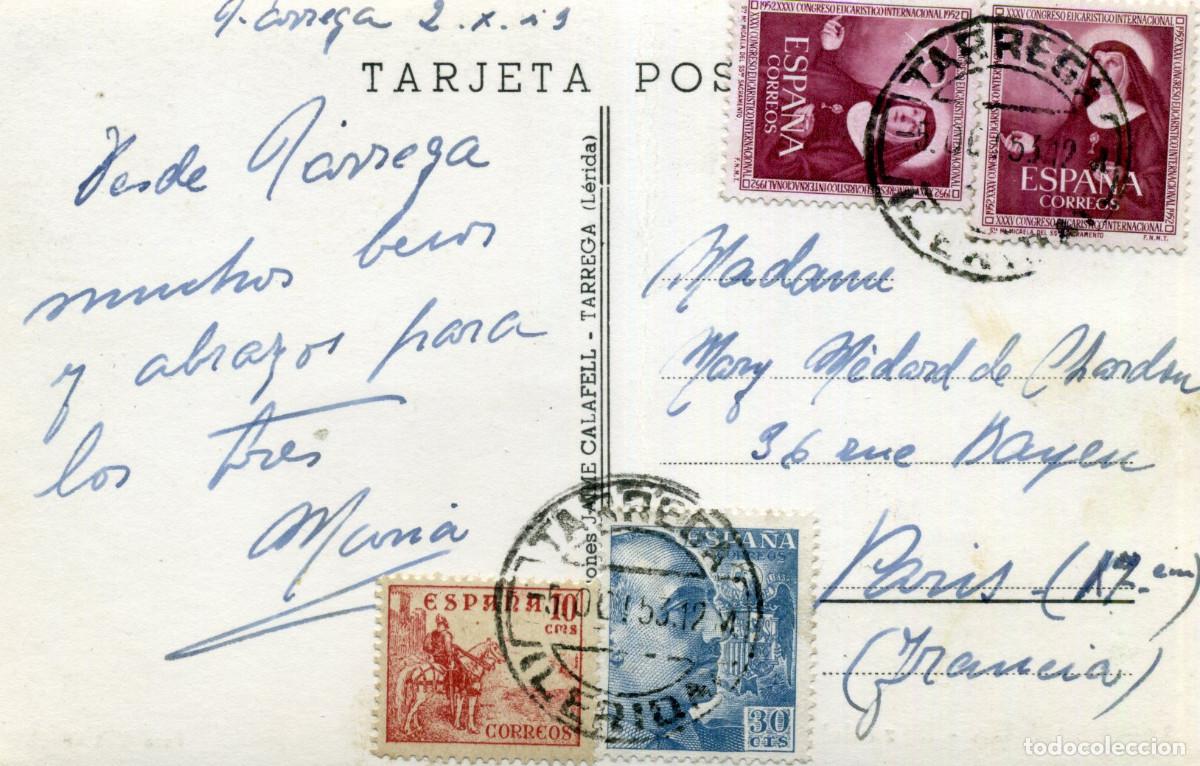 Tárrega 2.x.
TARJETA POS
Desde Tárrega
muchos besos
y abrazos para
los tres
María
ones JAIME CALAFELL - TARREGA (Lérida)
1952 XXXV CONGRESO EUCARISTICO INTERNACIONAL 1952
ESPAÑA
CORREOS
F.N.M.T.
XXXV CONGRESO EUCARISTICO INTERNACIONAL
ESPAÑA
CORREOS
XXXV CONGRESO EUCARISTICO INTERNACIONAL 1952
Sta MICAELA DEL SSMO SACRAMENTO F.N.M.T.
TARREGA
OCT 53.12 M
Madame
Mary Médard de Chardon
36 rue Bayen
Paris (17 em)
(Francia)
ESPAÑA 10
cms
CORREOS
ESPAÑA
CORREOS
30
CTS
TARREGA
OCT 53.12 M
(LERIDA)
todocoleccion